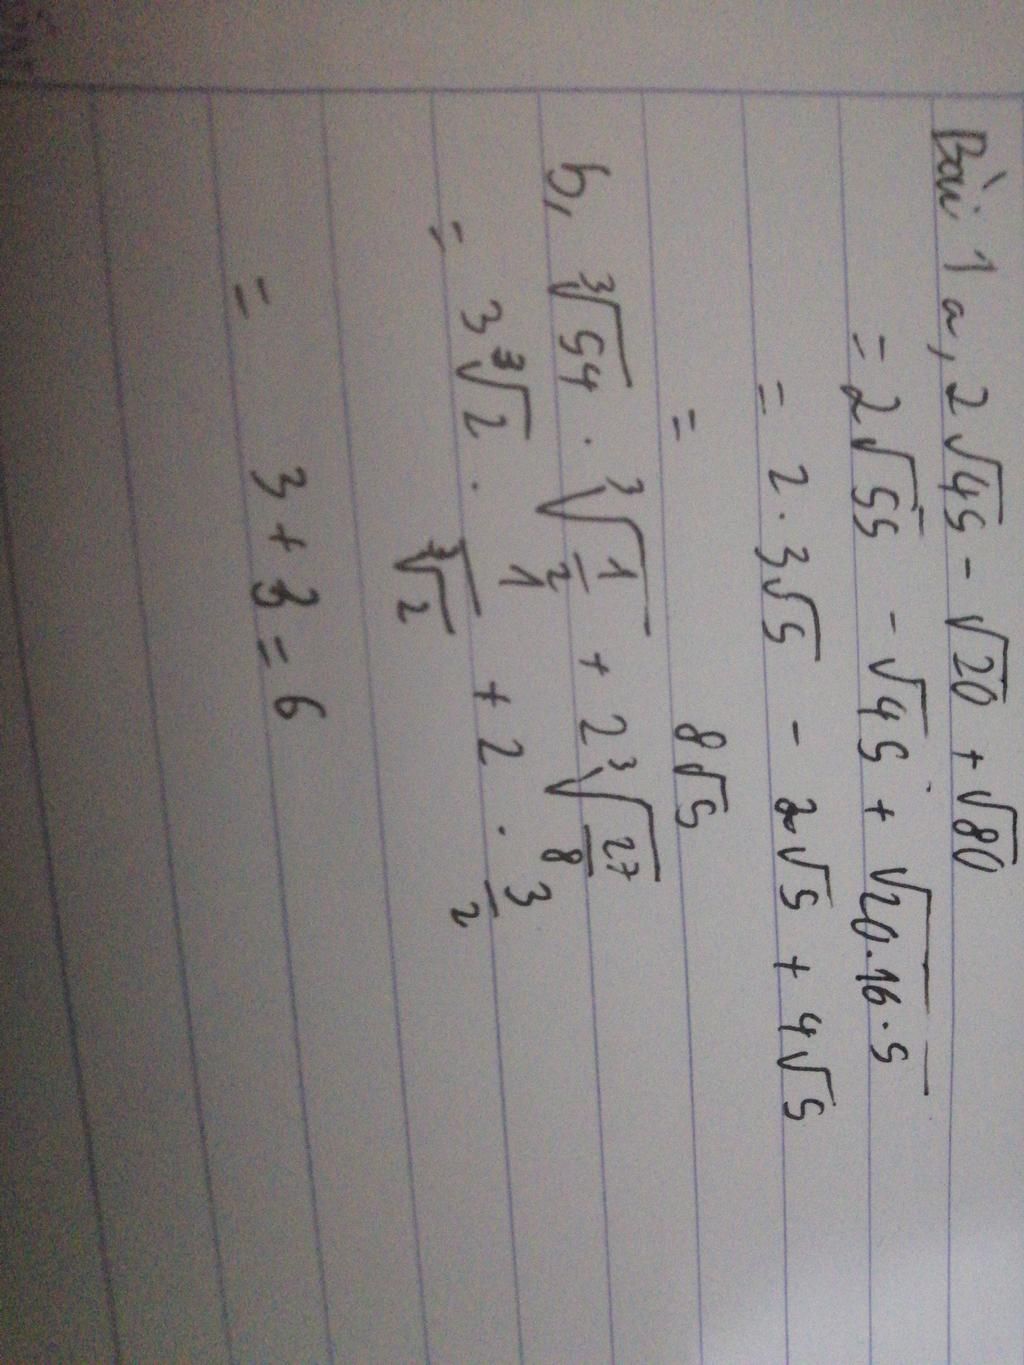 Bài 1 a, 2√45 - √20 + √80
= 2√55 - √45 + √20.16.5
= 2.3√5 - 2√5 + 4√5
= 8√5
b, ∛54 . ∛(1/2) + 2∛(27/8)
= 3∛2 . 1/∛2 + 2 . 3/2
= 3 + 3 = 6